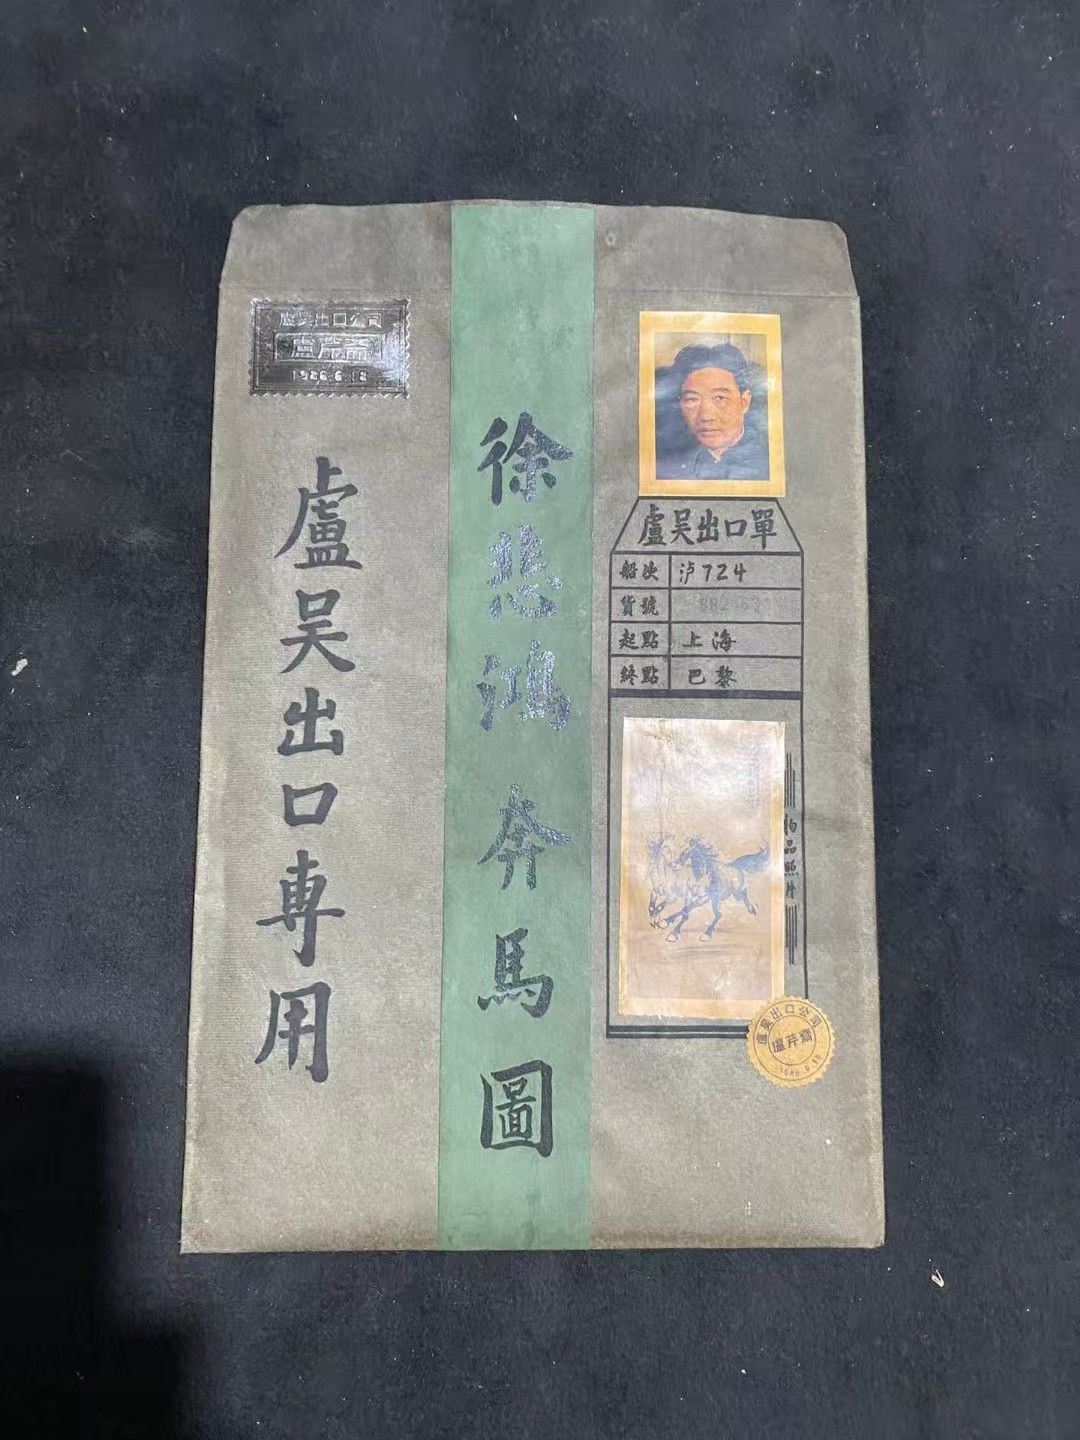 盧吴出口公司
盧芹斋
1986.6.18
盧吴出口専用
徐悲鴻 奔馬圖
盧吴出口單
船次 泸724
貨號
起點 上海
終點 巴黎
物品照片
盧吴出口公司
盧芹齋